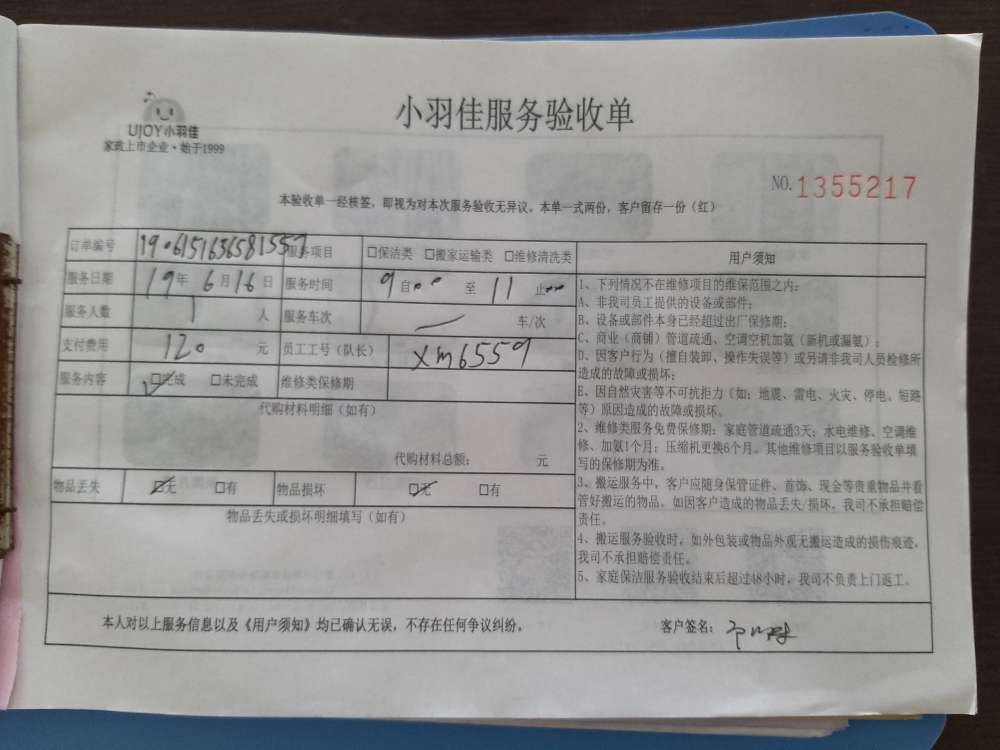 UJOY小羽佳
家政上市企业·始于1999
小羽佳服务验收单
NO.1355217
本验收单一经核签，即视为对本次服务验收无异议。本单一式两份，客户留存一份（红）
订单编号 190615163658155 服务项目 □保洁类 □搬家运输类 □维修清洗类
服务日期 19年 6月16日 服务时间 9 自 至 11 止
服务人数 1 人 服务车次 一 车/次
支付费用 120 元 员工工号（队长） xm6559
服务内容 ☑完成 □未完成 维修类保修期
代购材料明细（如有）
代购材料总额： 元
物品丢失 ☑无 □有 物品损坏 ☑无 □有
物品丢失或损坏明细填写（如有）
用户须知
1、下列情况不在维修项目的维保范围之内：
A、非我司员工提供的设备或部件；
B、设备或部件本身已经超过出厂保修期；
C、商业（商铺）管道疏通、空调空机加氨（新机或漏氨）；
D、因客户行为（擅自装卸、操作失误等）或另请非我司人员检修所
造成的故障或损坏；
E、因自然灾害等不可抗拒力（如：地震、雷电、火灾、停电、短路
等）原因造成的故障或损坏。
2、维修类服务免费保修期：家庭管道疏通3天；水电维修、空调维
修、加氨1个月；压缩机更换6个月。其他维修项目以服务验收单填
写的保修期为准。
3、搬运服务中，客户应随身保管证件、首饰、现金等贵重物品并看
管好搬运的物品。如因客户造成的物品丢失/损坏，我司不承担赔偿
责任。
4、搬运服务验收时，如外包装或物品外观无搬运造成的损伤痕迹，
我司不承担赔偿责任。
5、家庭保洁服务验收结束后超过48小时，我司不负责上门返工。
本人对以上服务信息以及《用户须知》均已确认无误，不存在任何争议纠纷。 客户签名：